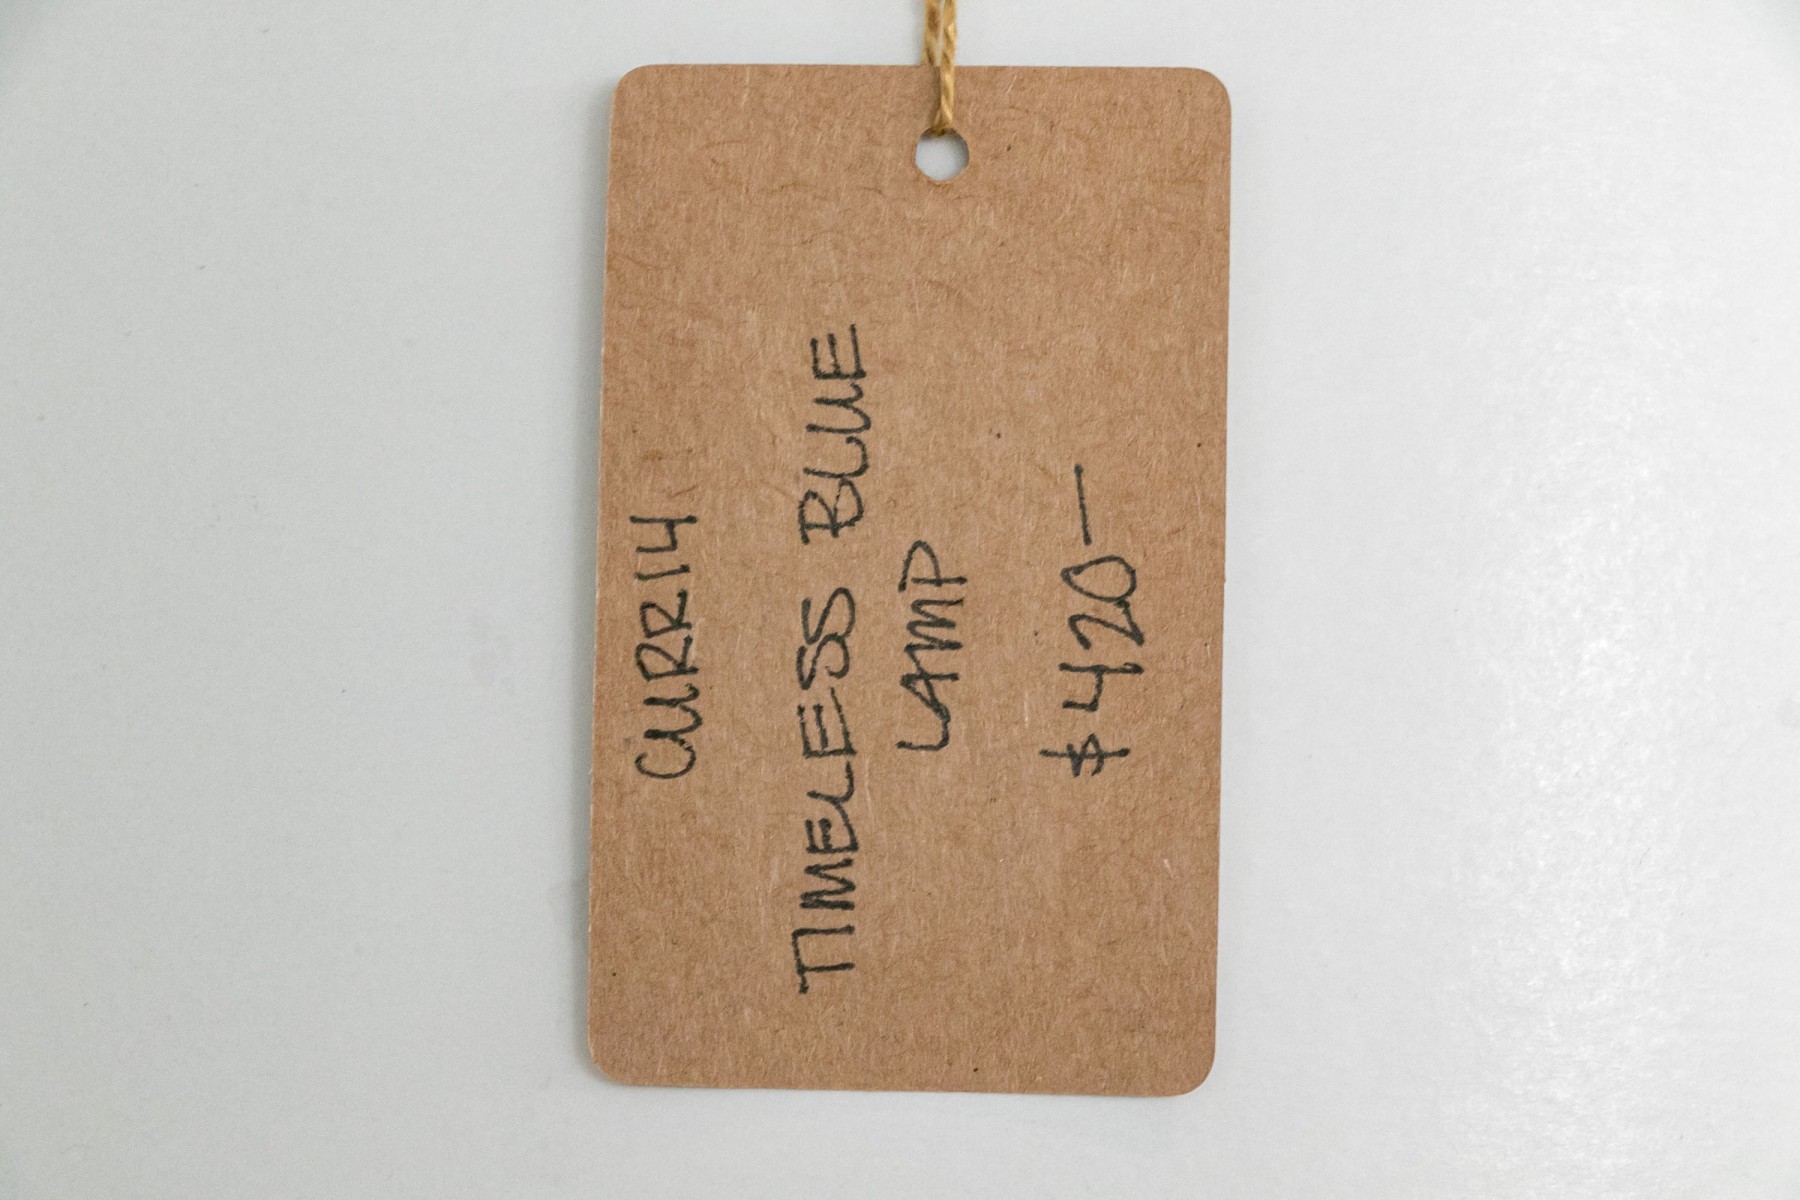 CURR14
TIMELESS BLUE
LAMP
$420—